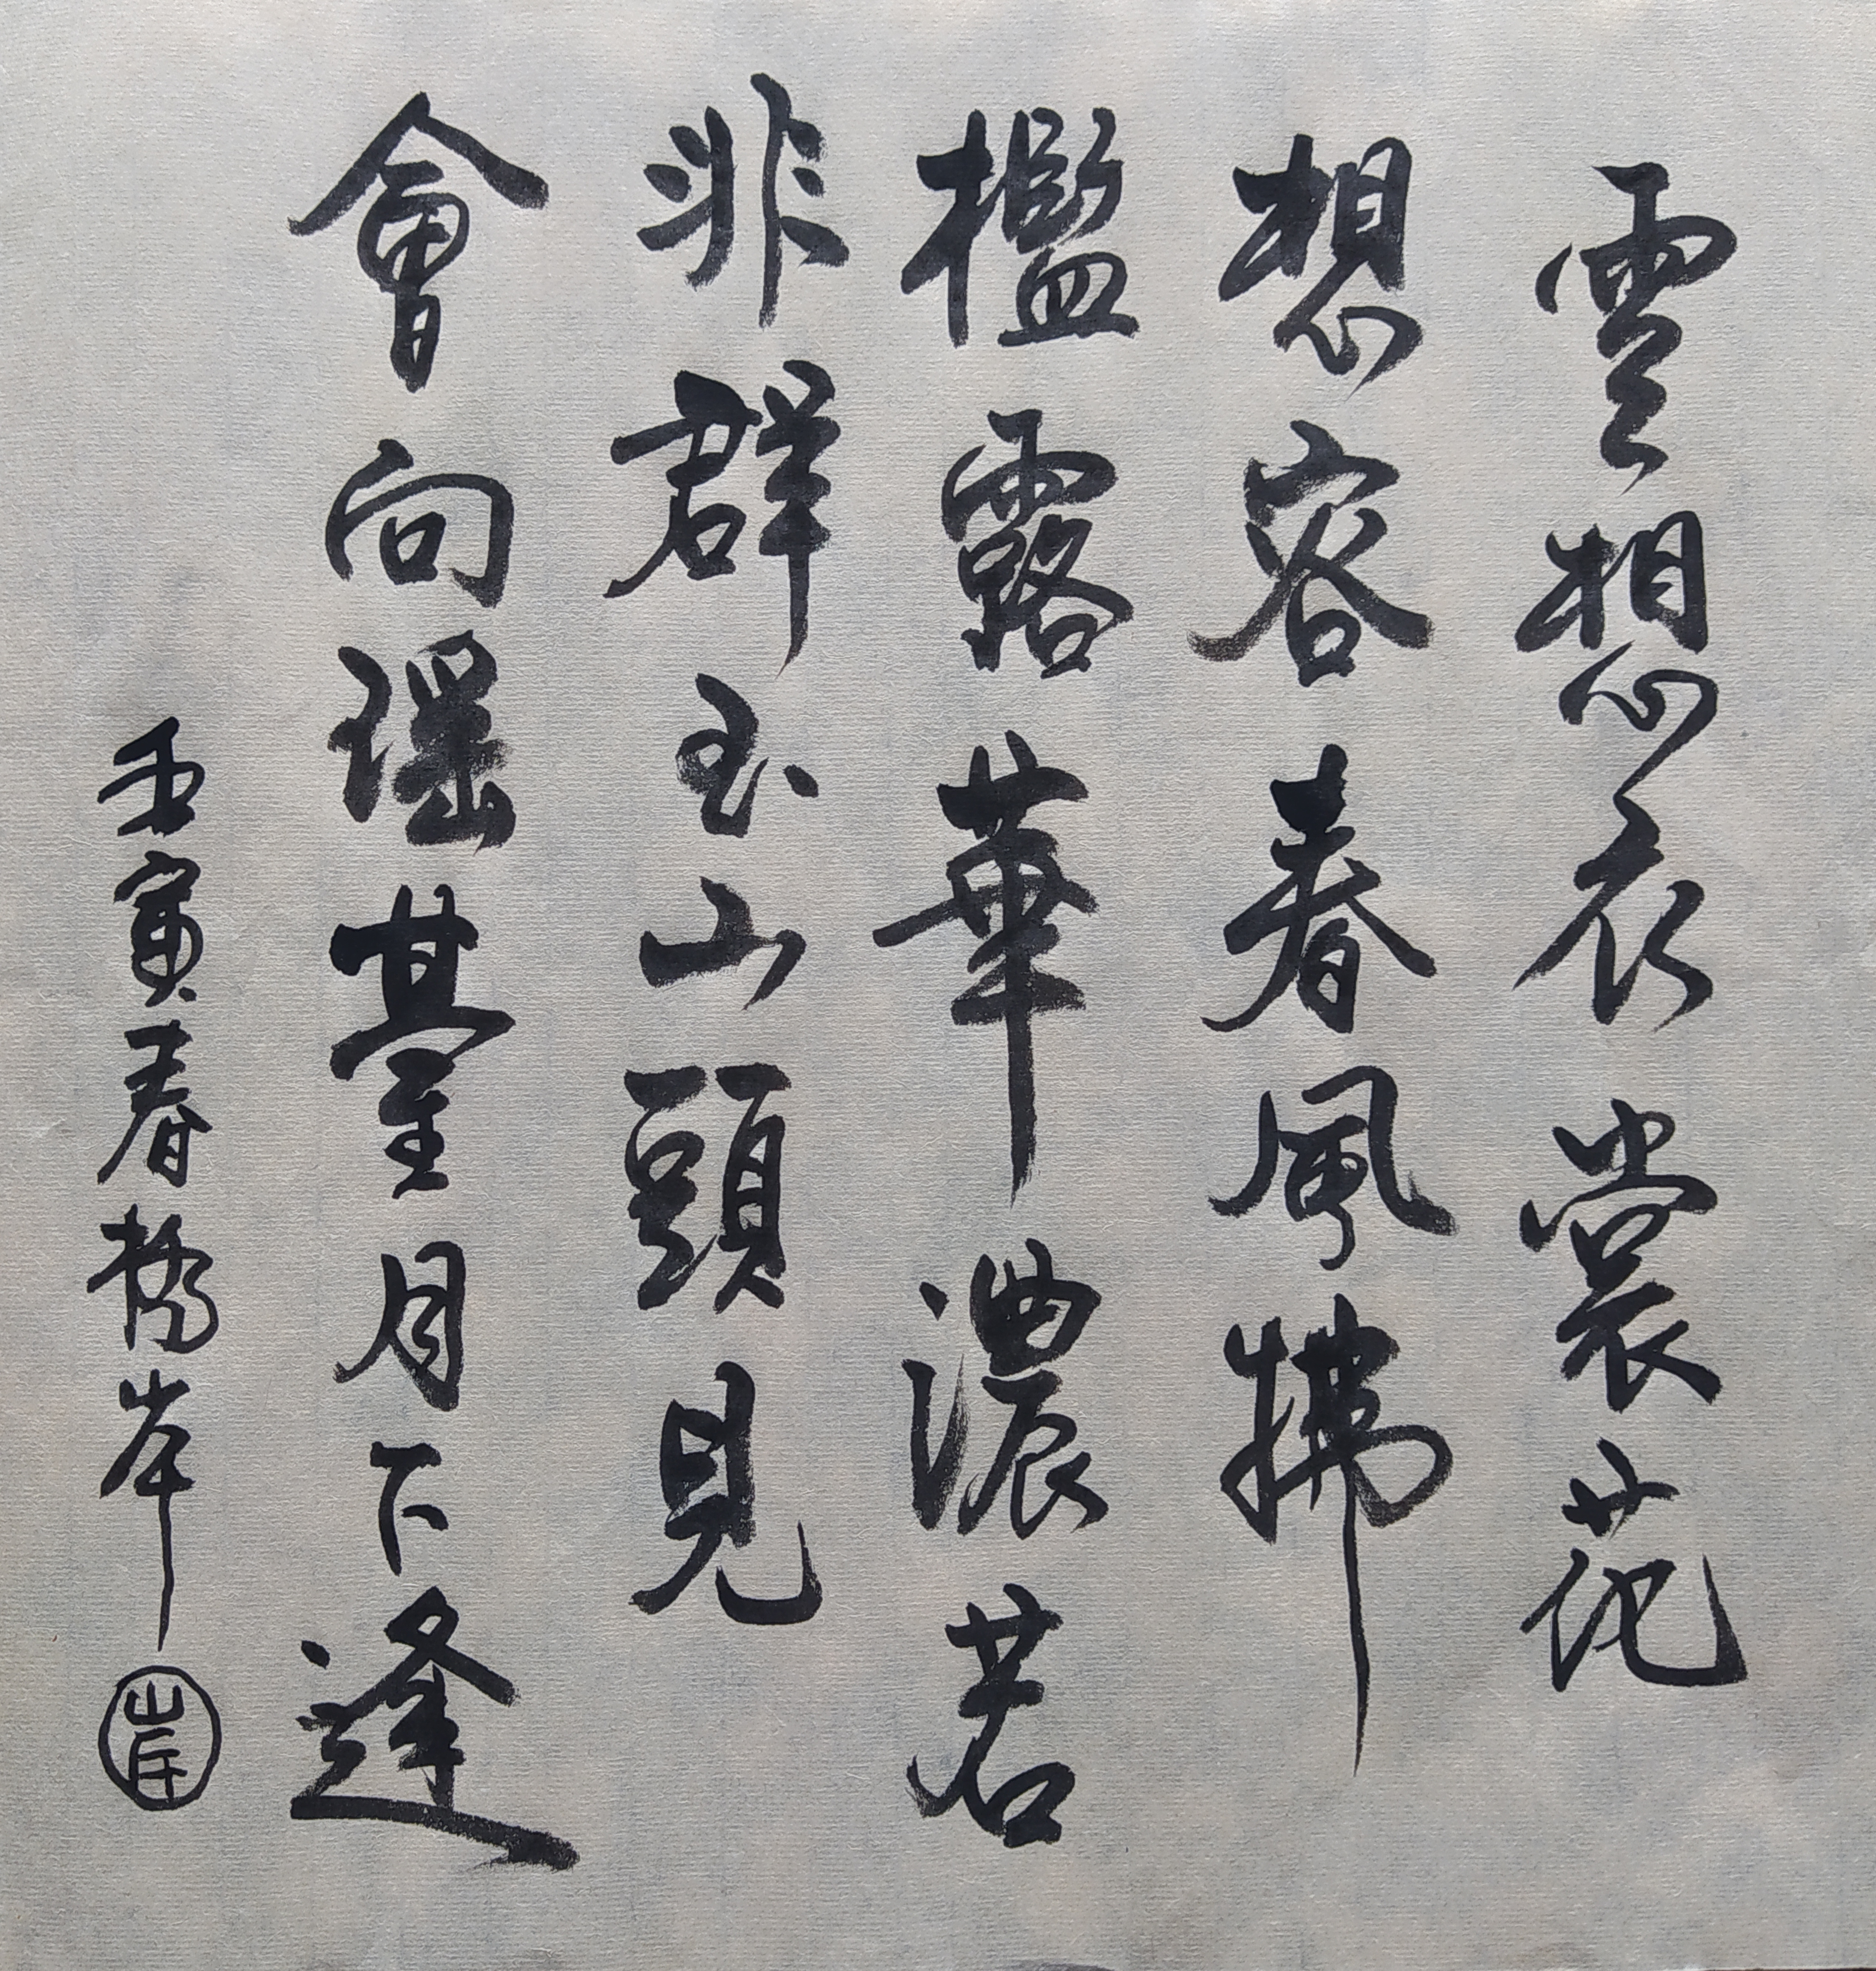 雲想衣裳花
想容春風拂
檻露華濃若
非群玉山頭見
會向瑶臺月下逢
壬寅春橋岸
岸